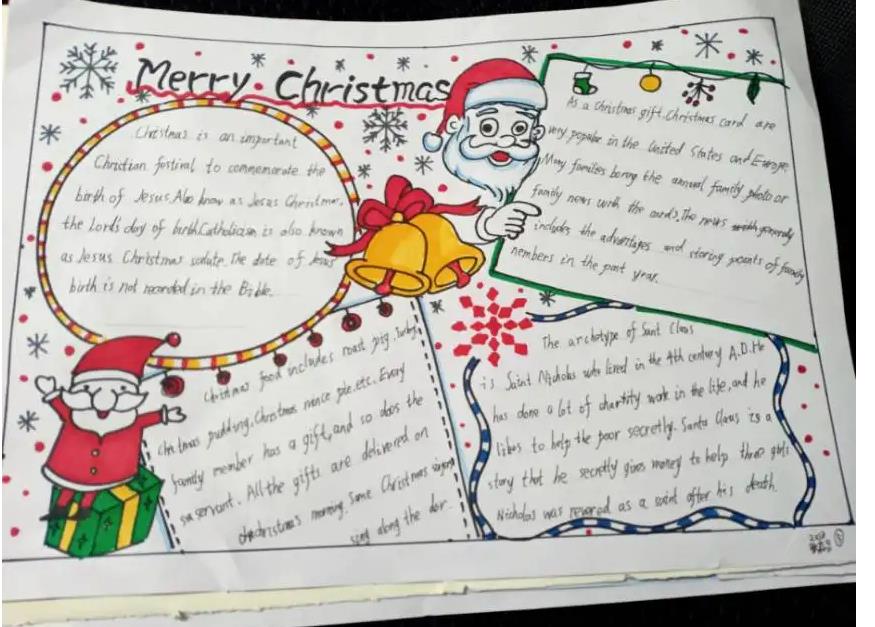 Merry Christmas
Christmas is an important
Christian festival to commemorate the
birth of Jesus. Also know as Jesus Christmas.
the Lord's day of birth. Catholicism is also known
as Jesus Christmas The date of Jesus
birth is not recorded in the Bible.
As a Christmas gift. Christmas card are
very popular in the United States and Europe.
Many families bering the annual family photo or
family news with the cards. The news generally
includes the advantages and storing points of family
nembers in the past year.
Christmas food includes roast pig. turkey.
Christmas pudding. Christmas mince pie. etc. Every
family member has a gift, and so does the
servant. All the gifts are delivered on
christmas morning. Some Christmas
sing along the
The archetype of Saint Claus
is Saint Nicholas who lived in the 4th century A.D. He
has done a lot of work in the life, and he
likes to help the poor secretly. Santa Claus is a
story that he secretly gives money to help three girls
Nicholas was revered as a saint after his death.